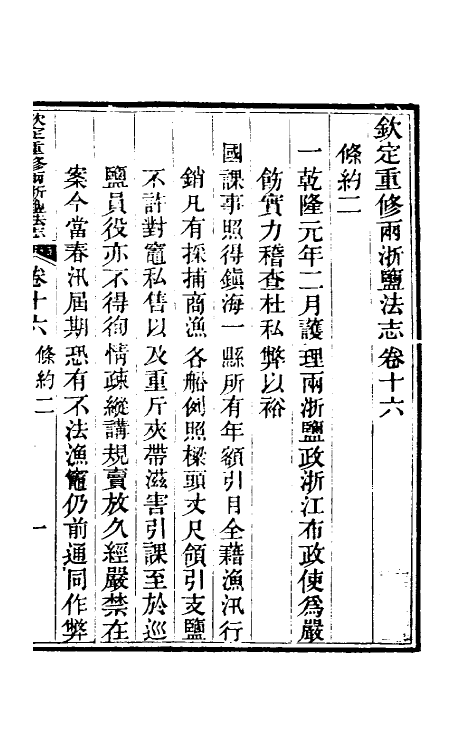 欽定重修兩浙鹽法志卷十六
條約二
一乾隆元年二月護理兩浙鹽政浙江布政使爲嚴
飭實力稽查杜私弊以裕
國課事照得鎮海一縣所有年額引目全藉漁汛行
銷凡有採捕商漁各船例照樑頭丈尺領引支鹽
不許對竈私售以及重斤夾帶滋害引課至於巡
鹽員役亦不得徇情疎縱講規賣放久經嚴禁在
案今當春汛屆期恐有不法漁竈仍前通同作弊
欽定重修兩浙鹽法志
卷十六 條約二 一